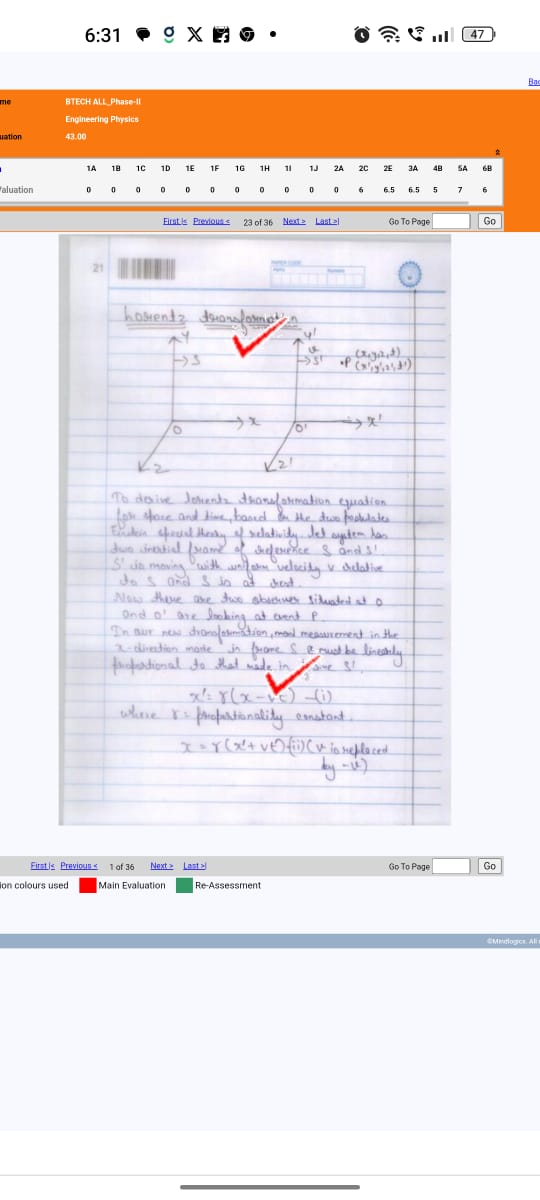 6:31
47
Bac
me
BTECH ALL_Phase-II
Engineering Physics
uation
43.00
1A 1B 1C 1D 1E 1F 1G 1H 1I 1J 2A 2C 2E 3A 4B 5A 6B
aluation 0 0 0 0 0 0 0 0 0 0 0 6 6.5 6.5 5 7 6
First |< Previous < 23 of 36 Next > Last >| Go To Page Go
21
Lorentz transformation
Y Y'
→S v →S' •P (x,y,z,t)
(x',y',z',t')
O → x O' → x'
Z Z'
To derive lorentz transformation equation
for space and time, based on the two postulates
Einstein special theory of relativity. Let system has
two inertial frame of reference S and S'
S' is moving with uniform velocity v relative
to S and S is at rest.
Now there are two observer situated at O
and O' are looking at event P.
In our new transformation, measurement in the
x-direction made in frame S must be linearly
proportional to that made in S'.
x' = γ(x - vt) -(i)
where γ = proportionality constant.
x = γ(x' + vt') -(ii) (v is replaced
by -v)
First |< Previous < 1 of 36 Next > Last >| Go To Page Go
ion colours used Main Evaluation Re-Assessment
©Mindlogicx. All